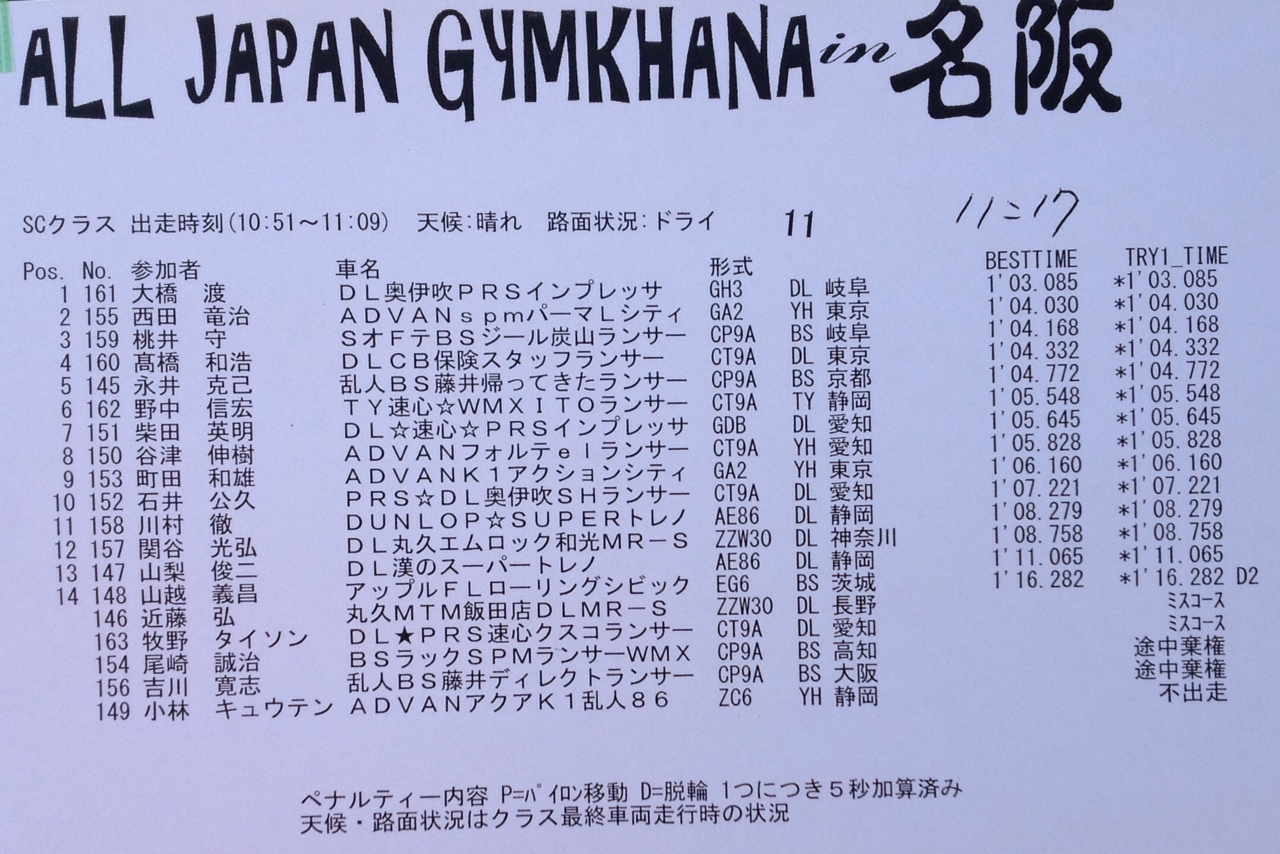 ALL JAPAN GYMKHANA in 名阪
11:17
SCクラス 出走時刻(10:51～11:09) 天候:晴れ 路面状況:ドライ 11
Pos. No. 参加者 車名 形式 BESTTIME TRY1_TIME
1 161 大橋 渡 ＤＬ奥伊吹ＰＲＳインプレッサ GH3 DL 岐阜 1'03.085 *1'03.085
2 155 西田 竜治 ＡＤＶＡＮｓｐｍパーマＬシティ GA2 YH 東京 1'04.030 *1'04.030
3 159 桃井 守 ＳオＦテＢＳジール炭山ランサー CP9A BS 岐阜 1'04.168 *1'04.168
4 160 髙橋 和浩 ＤＬＣＢ保険スタッフランサー CT9A DL 東京 1'04.332 *1'04.332
5 145 永井 克己 乱人ＢＳ藤井帰ってきたランサー CP9A BS 京都 1'04.772 *1'04.772
6 162 野中 信宏 ＴＹ速心☆ＷＭＸＩＴＯランサー CT9A TY 静岡 1'05.548 *1'05.548
7 151 柴田 英明 ＤＬ☆速心☆ＰＲＳインプレッサ GDB DL 愛知 1'05.645 *1'05.645
8 150 谷津 伸樹 ＡＤＶＡＮフォルテｅｌランサー CT9A YH 愛知 1'05.828 *1'05.828
9 153 町田 和雄 ＡＤＶＡＮＫ１アクションシティ GA2 YH 東京 1'06.160 *1'06.160
10 152 石井 公久 ＰＲＳ☆ＤＬ奥伊吹ＳＨランサー CT9A DL 愛知 1'07.221 *1'07.221
11 158 川村 徹 ＤＵＮＬＯＰ☆ＳＵＰＥＲトレノ AE86 DL 静岡 1'08.279 *1'08.279
12 157 関谷 光弘 ＤＬ丸久エムロック和光ＭＲ－Ｓ ZZW30 DL 神奈川 1'08.758 *1'08.758
13 147 山梨 俊二 ＤＬ漢のスーパートレノ AE86 DL 静岡 1'11.065 *1'11.065
14 148 山越 義昌 アップルＦＬローリングシビック EG6 BS 茨城 1'16.282 *1'16.282 D2
146 近藤 弘 丸久ＭＴＭ飯田店ＤＬＭＲ－Ｓ ZZW30 DL 長野 ﾐｽｺｰｽ
163 牧野 タイソン ＤＬ★ＰＲＳ速心クスコランサー CT9A DL 愛知 ﾐｽｺｰｽ
154 尾崎 誠治 ＢＳラックＳＰＭランサーＷＭＸ CP9A BS 高知 途中棄権
156 吉川 寛志 乱人ＢＳ藤井ディレクトランサー CP9A BS 大阪 途中棄権
149 小林 キュウテン ＡＤＶＡＮアクアＫ１乱人８６ ZC6 YH 静岡 不出走
ペナルティー内容 P=ﾊﾟｲﾛﾝ移動 D=脱輪 1つにつき５秒加算済み
天候・路面状況はクラス最終車両走行時の状況